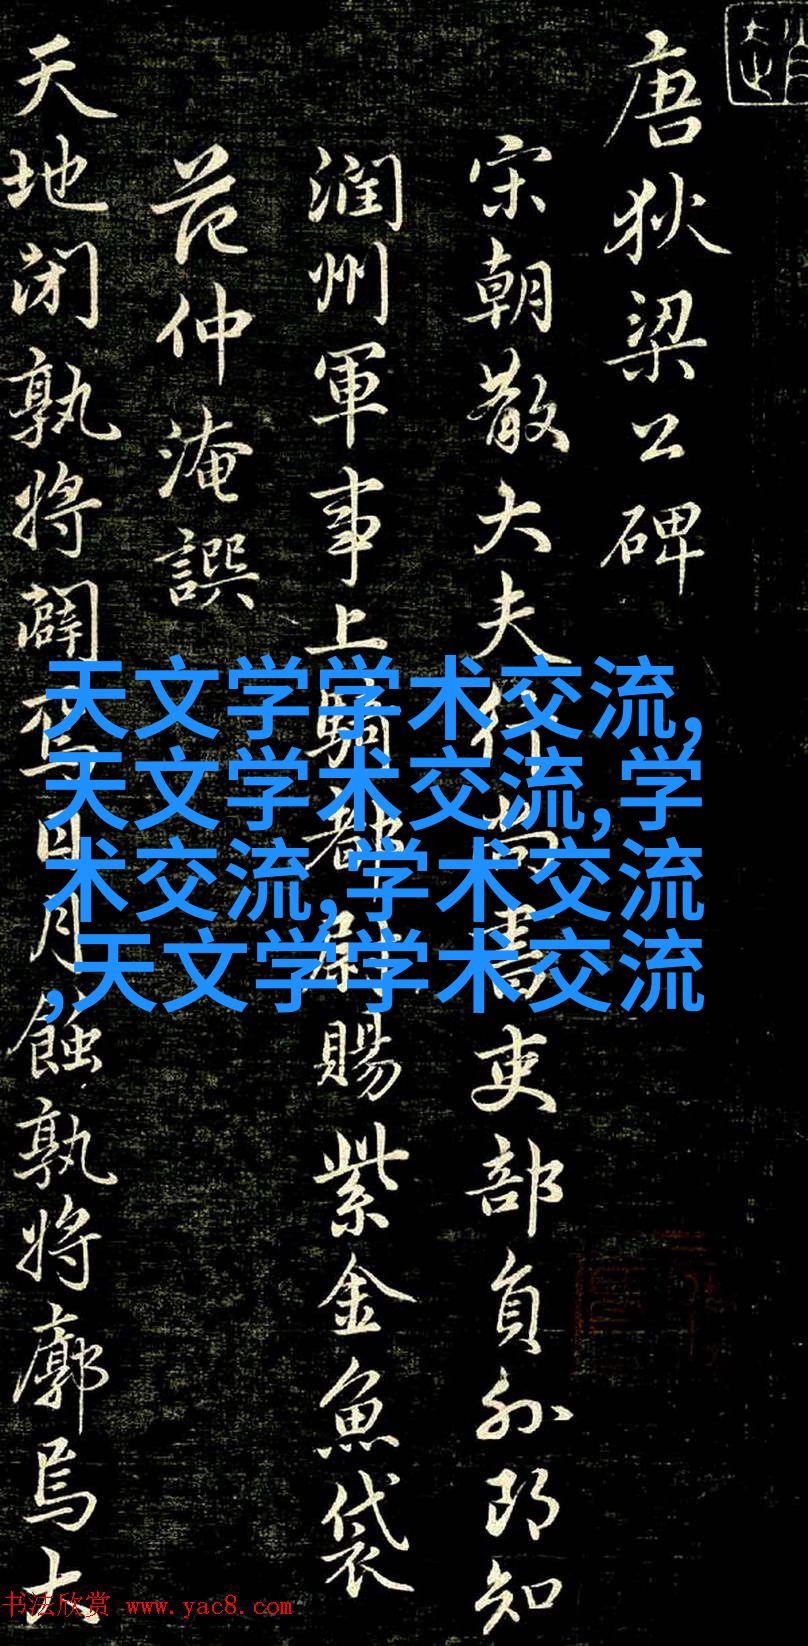 唐狄梁公碑
宋朝散大夫行尚書吏部員外郎知
潤州軍事上騎都尉賜紫金魚袋
范仲淹譔
天地閉孰將闢焉日月蝕孰將廓焉大
天文学学术交流,
天文学术交流,学
术交流,学术交流
,天文学学术交流
书法欣赏 www.yac8.com